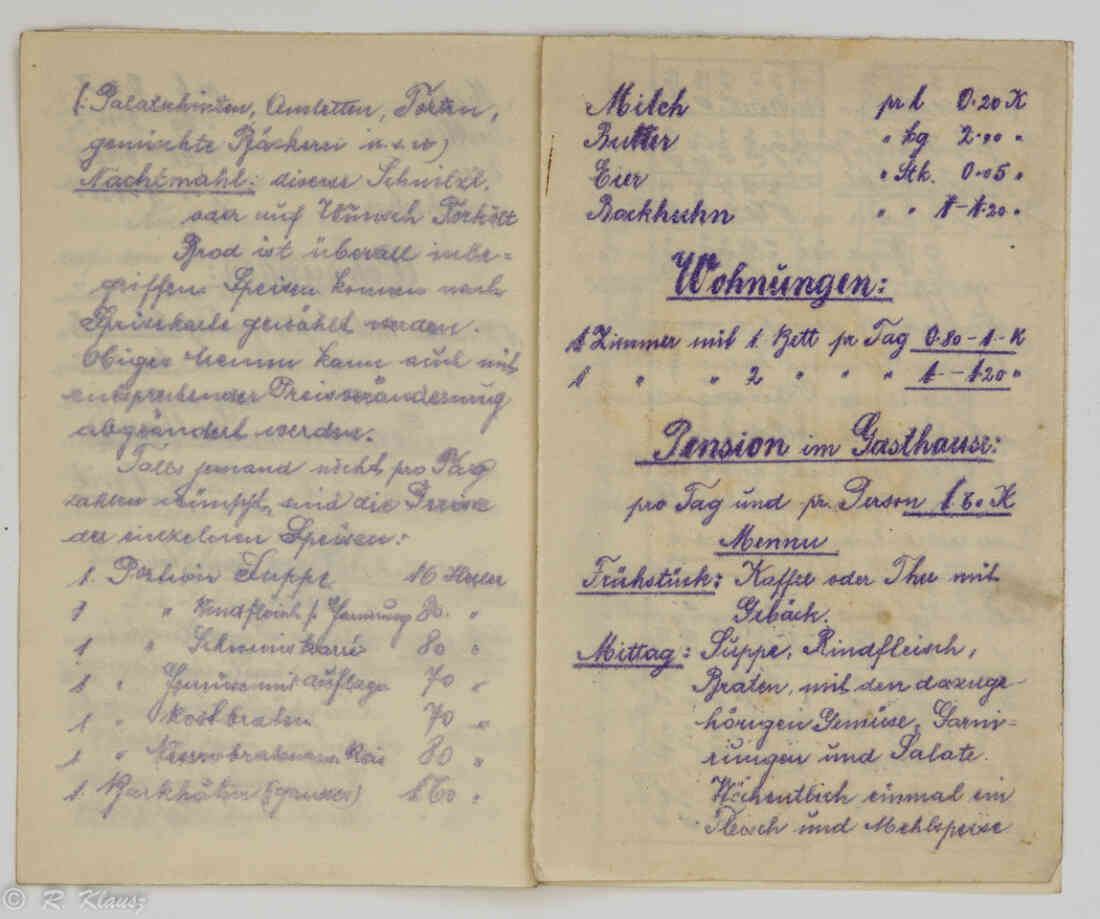 (: Palatschinken, Omletten, Torten,
gemischte Bäckerei u.s.w)
Nachtmahl: diverse Schnitzl.
oder auf Wunsch
Brod ist überall inbe=
griffen. Speisen können nach
Speisekarte gewählt werden.
Obiges Mennu kann auch mit
entsprechender Preisveränderung
abgeändert werden.
Falls jemand nicht pro Tag
zahlen wünscht, sind die Preise
der einzelnen Speisen:
1 Portion Suppe 16 Heller
1 " Rindfleisch 80 "
1 " 80 "
1 " Gemüse mit Auflage 70 "
1 " Rostbraten 70 "
1 " 80 "
1 (ganzes) 1.60 "
Milch pr l 0.20 K
Butter " kg "
Eier " Stk. 0.05 "
Backhuhn " " 1-1.20 "
Wohnungen:
1 Zimmer mit 1 Bett pr Tag 0.80-1.-K
1 " " 2 " " " 1.-1.20 "
Pension im Gasthause:
pro Tag und pr. Person K
Mennu
Frühstück: Kaffee oder Thee mit
Gebäck.
Mittag: Suppe, Rindfleisch,
Braten, mit den dazuge-
hörigen Gemüse, Garni-
rungen und Salate.
Wöchentlich einmal ein
Fleisch und Mehlspeise
© R. Klausz